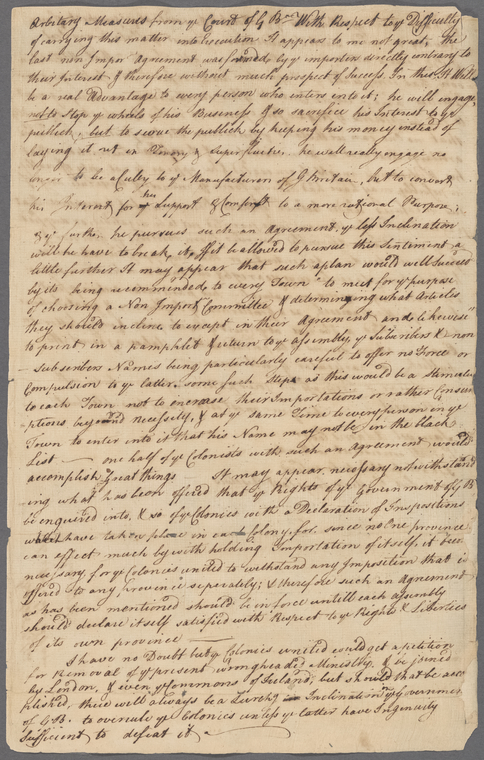 Arbitrary Measures from ye Court of G Bn With Respect to ye Difficulty
of carrying this matter into Execution It appears to me not great, the
last non Impor Agreement was made, by ye importers directly contrary to
their Interest & therefore without much prospect of Success. In this It Will
be a real Advantage to every person who enters into it; he will engage
not to Stop ye wheels of his Business & so sacrifice his Interest to ye
publick, but to serve the publick by keeping his money instead of
laying it out in & Superfluities he will really engage no
longer to be a to ye Manufacturers of G Britain, but to convert
his Interest for his Support & Comfort to a more rational Purpose;
& ye further he pursues such an Agreement ye less Inclination
will he have to break it, If it be allowed to pursue this Sentiment a
little further It may appear that such a plan would well Succeed
by its being recommended to every Town to meet for ye purpose
of choosing a Non Import Committee & determining what Articles
they should incline to except in their Agreement and likewise
to print in a pamphlet & return to ye assembly, ye Subcribers & non
subscribers Names being particularly careful to offer no Force or
Compulsion to ye latter. some such Steps as this would be a stimulus
to each Town not to encrease their Importations or rather Consum
ptions beyond necessity, & at ye same Time to every person in ye
Town to enter into it that his Name may not be in the black
List — one half of ye Colonists with such an Agreement would
accomplish Great things It may appear necessary notwithstand
ing what has been offered that ye Rights of ye Government of G B
be enquired into, & so of ye Colonies with a Declaration of Impositions
which have taken place in each Colony, for since no One province
can effect much by with holding Importation of itself, it bee
necessary for ye Colonies united to withstand any Imposition that is
offered to any province seperately; & therefore such an Agreement
as has been mentioned should be in force untill each assembly
should declare itself satisfied with Respect to ye Rights & Liberties
of its own province —
I have no Doubt but ye Colonies united could get a petition
for Removal of ye present wrongheaded Ministry, & be joined
by London, & even ye Governors of Ireland, but should that be acco
mplished, there will always be a Lurking Inclination in ye Government
of G B. to overrule ye Colonies unless ye latter have Ingenuity
Sufficient to defeat it